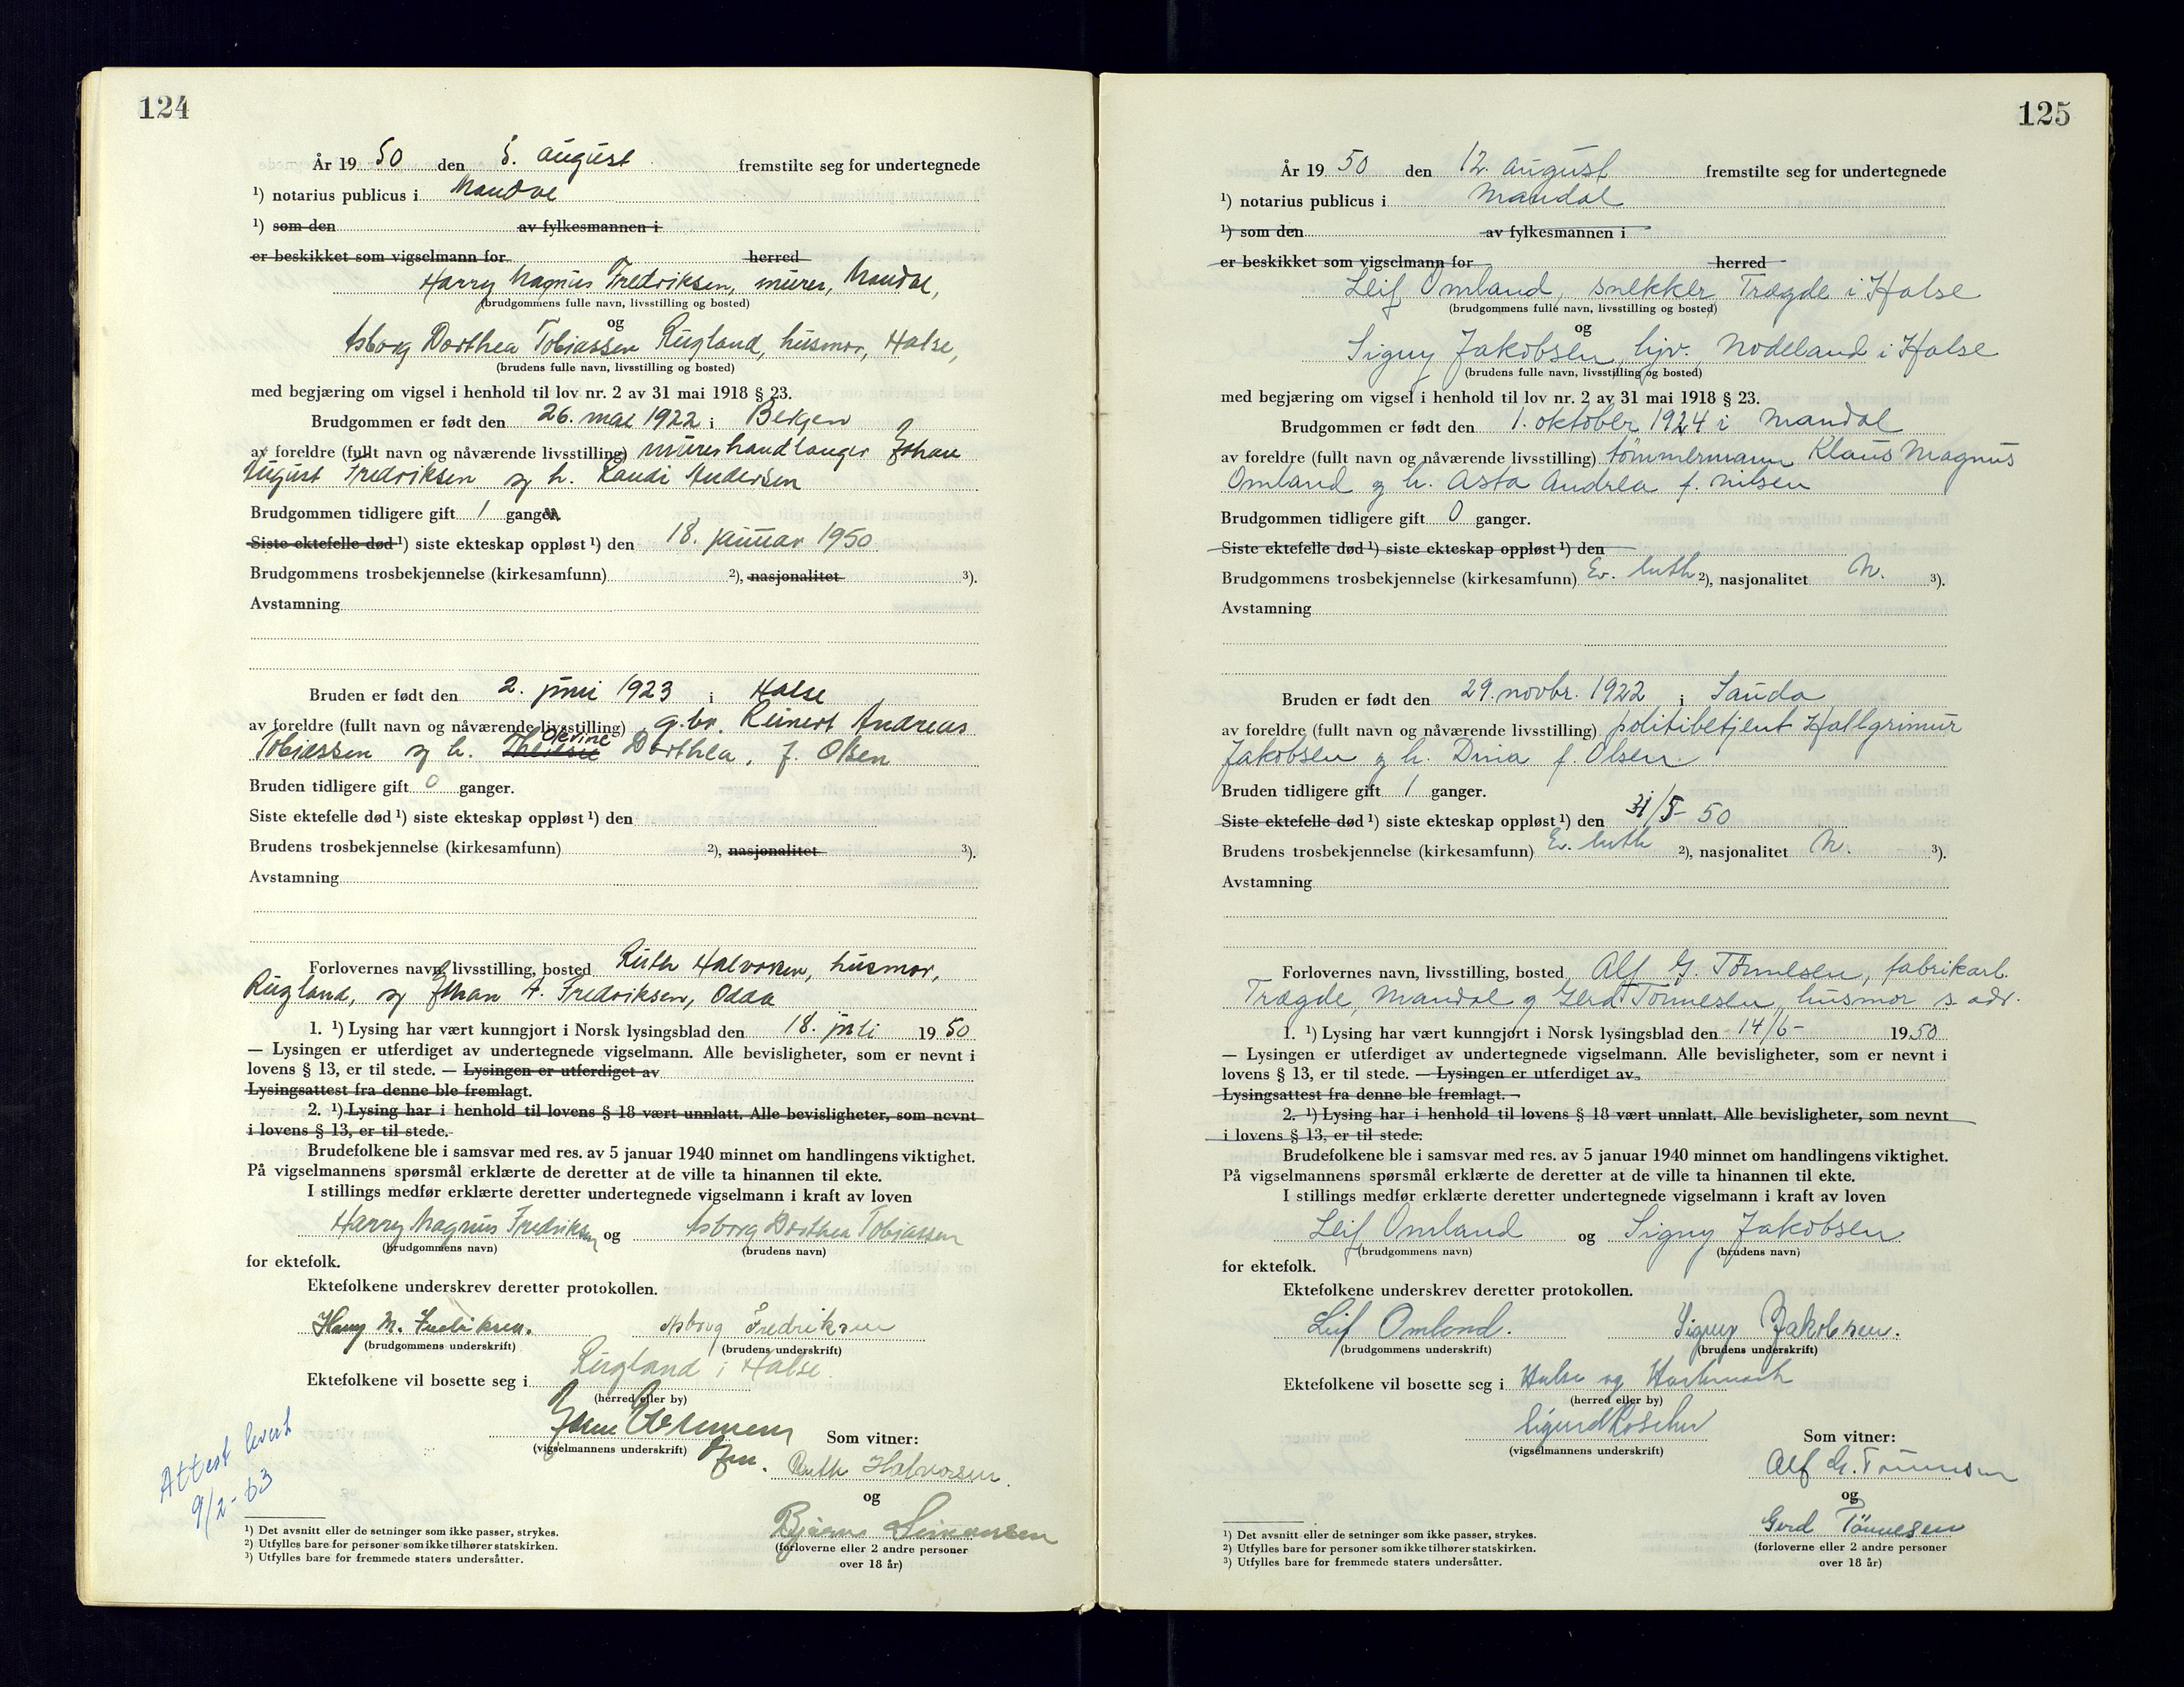 124
År 19 50 den 5. august fremstilte seg for undertegnede
¹) notarius publicus i Mandal
¹) som den av fylkesmannen i
er beskikket som vigselmann for herred
Harry Magnus Fredriksen, murer, Mandal,
(brudgommens fulle navn, livsstilling og bosted)
og
Asborg Dorthea Tobiassen Rugland, husmor, Halse,
(brudens fulle navn, livsstilling og bosted)
med begjæring om vigsel i henhold til lov nr. 2 av 31 mai 1918 § 23.
Brudgommen er født den 26. mai 1922 i Bergen
av foreldre (fullt navn og nåværende livsstilling) murerhandlanger Johan
August Fredriksen og h. Randi Andersen
Brudgommen tidligere gift 1 ganger.
Siste ektefelle død ¹) siste ekteskap oppløst ¹) den 18. januar 1950
Brudgommens trosbekjennelse (kirkesamfunn) ²), nasjonalitet ³).
Avstamning
Bruden er født den 2. juni 1923 i Halse
av foreldre (fullt navn og nåværende livsstilling) g.br. Reinert Andreas
Tobiassen og h. Olevine Dorthea, f. Olsen
Bruden tidligere gift 0 ganger.
Siste ektefelle død ¹) siste ekteskap oppløst ¹) den
Brudens trosbekjennelse (kirkesamfunn) ²), nasjonalitet ³).
Avstamning
Forlovernes navn, livsstilling, bosted Ruth Halvorsen, husmor,
Rugland, og Johan A. Fredriksen, Odda
1. ¹) Lysing har vært kunngjort i Norsk lysingsblad den 18. juli 19 50
— Lysingen er utferdiget av undertegnede vigselmann. Alle bevisligheter, som er nevnt i
lovens § 13, er til stede. — Lysingen er utferdiget av
Lysingsattest fra denne ble fremlagt.
2. ¹) Lysing har i henhold til lovens § 18 vært unnlatt. Alle bevisligheter, som nevnt
i lovens § 13, er til stede.
Brudefolkene ble i samsvar med res. av 5 januar 1940 minnet om handlingens viktighet.
På vigselmannens spørsmål erklærte de deretter at de ville ta hinannen til ekte.
I stillings medfør erklærte deretter undertegnede vigselmann i kraft av loven
Harry Magnus Fredriksen og Asborg Dorthea Tobiassen
(brudgommens navn) (brudens navn)
for ektefolk.
Ektefolkene underskrev deretter protokollen.
Harry M. Fredriksen. Asborg Fredriksen
(brudgommens underskrift) (brudens underskrift)
Ektefolkene vil bosette seg i Rugland i Halse
(herred eller by)
(vigselmannens underskrift) Som vitner:
Ruth Halvorsen.
og
Bjarne Simonsen
(forloverne eller 2 andre personer
over 18 år)
Attest levert
9/2-63
¹) Det avsnitt eller de setninger som ikke passer, strykes.
²) Utfylles bare for personer som ikke tilhører statskirken.
³) Utfylles bare for fremmede staters undersåtter.
125
År 19 50 den 12. august fremstilte seg for undertegnede
¹) notarius publicus i Mandal
¹) som den av fylkesmannen i
er beskikket som vigselmann for herred
Leif Omland, snekker Trægde i Halse
(brudgommens fulle navn, livsstilling og bosted)
og
Signy Jakobsen, hjv. Nodeland i Halse
(brudens fulle navn, livsstilling og bosted)
med begjæring om vigsel i henhold til lov nr. 2 av 31 mai 1918 § 23.
Brudgommen er født den 1. oktober 1924 i Mandal
av foreldre (fullt navn og nåværende livsstilling) tömmermann Klaus Magnus
Omland og h. Asta Andrea f. Nilsen
Brudgommen tidligere gift 0 ganger.
Siste ektefelle død ¹) siste ekteskap oppløst ¹) den
Brudgommens trosbekjennelse (kirkesamfunn) Ev. luth ²), nasjonalitet N. ³).
Avstamning
Bruden er født den 29. novbr. 1922 i Sauda
av foreldre (fullt navn og nåværende livsstilling) politibetjent Hallgrimur
Jakobsen og h. Dina f. Olsen
Bruden tidligere gift 1 ganger.
Siste ektefelle død ¹) siste ekteskap oppløst ¹) den 31/5- 50
Brudens trosbekjennelse (kirkesamfunn) Ev. luth ²), nasjonalitet N. ³).
Avstamning
Forlovernes navn, livsstilling, bosted Alf G. Tönnesen, fabrikarb.
Trægde, Mandal og Gerd Tönnesen, husmor s. adr.
1. ¹) Lysing har vært kunngjort i Norsk lysingsblad den 14/6- 19 50
— Lysingen er utferdiget av undertegnede vigselmann. Alle bevisligheter, som er nevnt i
lovens § 13, er til stede. — Lysingen er utferdiget av
Lysingsattest fra denne ble fremlagt. —
2. ¹) Lysing har i henhold til lovens § 18 vært unnlatt. Alle bevisligheter, som nevnt
i lovens § 13, er til stede.
Brudefolkene ble i samsvar med res. av 5 januar 1940 minnet om handlingens viktighet.
På vigselmannens spørsmål erklærte de deretter at de ville ta hinannen til ekte.
I stillings medfør erklærte deretter undertegnede vigselmann i kraft av loven
Leif Omland og Signy Jakobsen
(brudgommens navn) (brudens navn)
for ektefolk.
Ektefolkene underskrev deretter protokollen.
Leif Omland. Signy Jakobsen.
(brudgommens underskrift) (brudens underskrift)
Ektefolkene vil bosette seg i Halse og Harkmark
(herred eller by)
(vigselmannens underskrift) Som vitner:
Alf G. Tönnesen
og
Gerd Tönnesen
(forloverne eller 2 andre personer
over 18 år)
¹) Det avsnitt eller de setninger som ikke passer, strykes.
²) Utfylles bare for personer som ikke tilhører statskirken.
³) Utfylles bare for fremmede staters undersåtter.